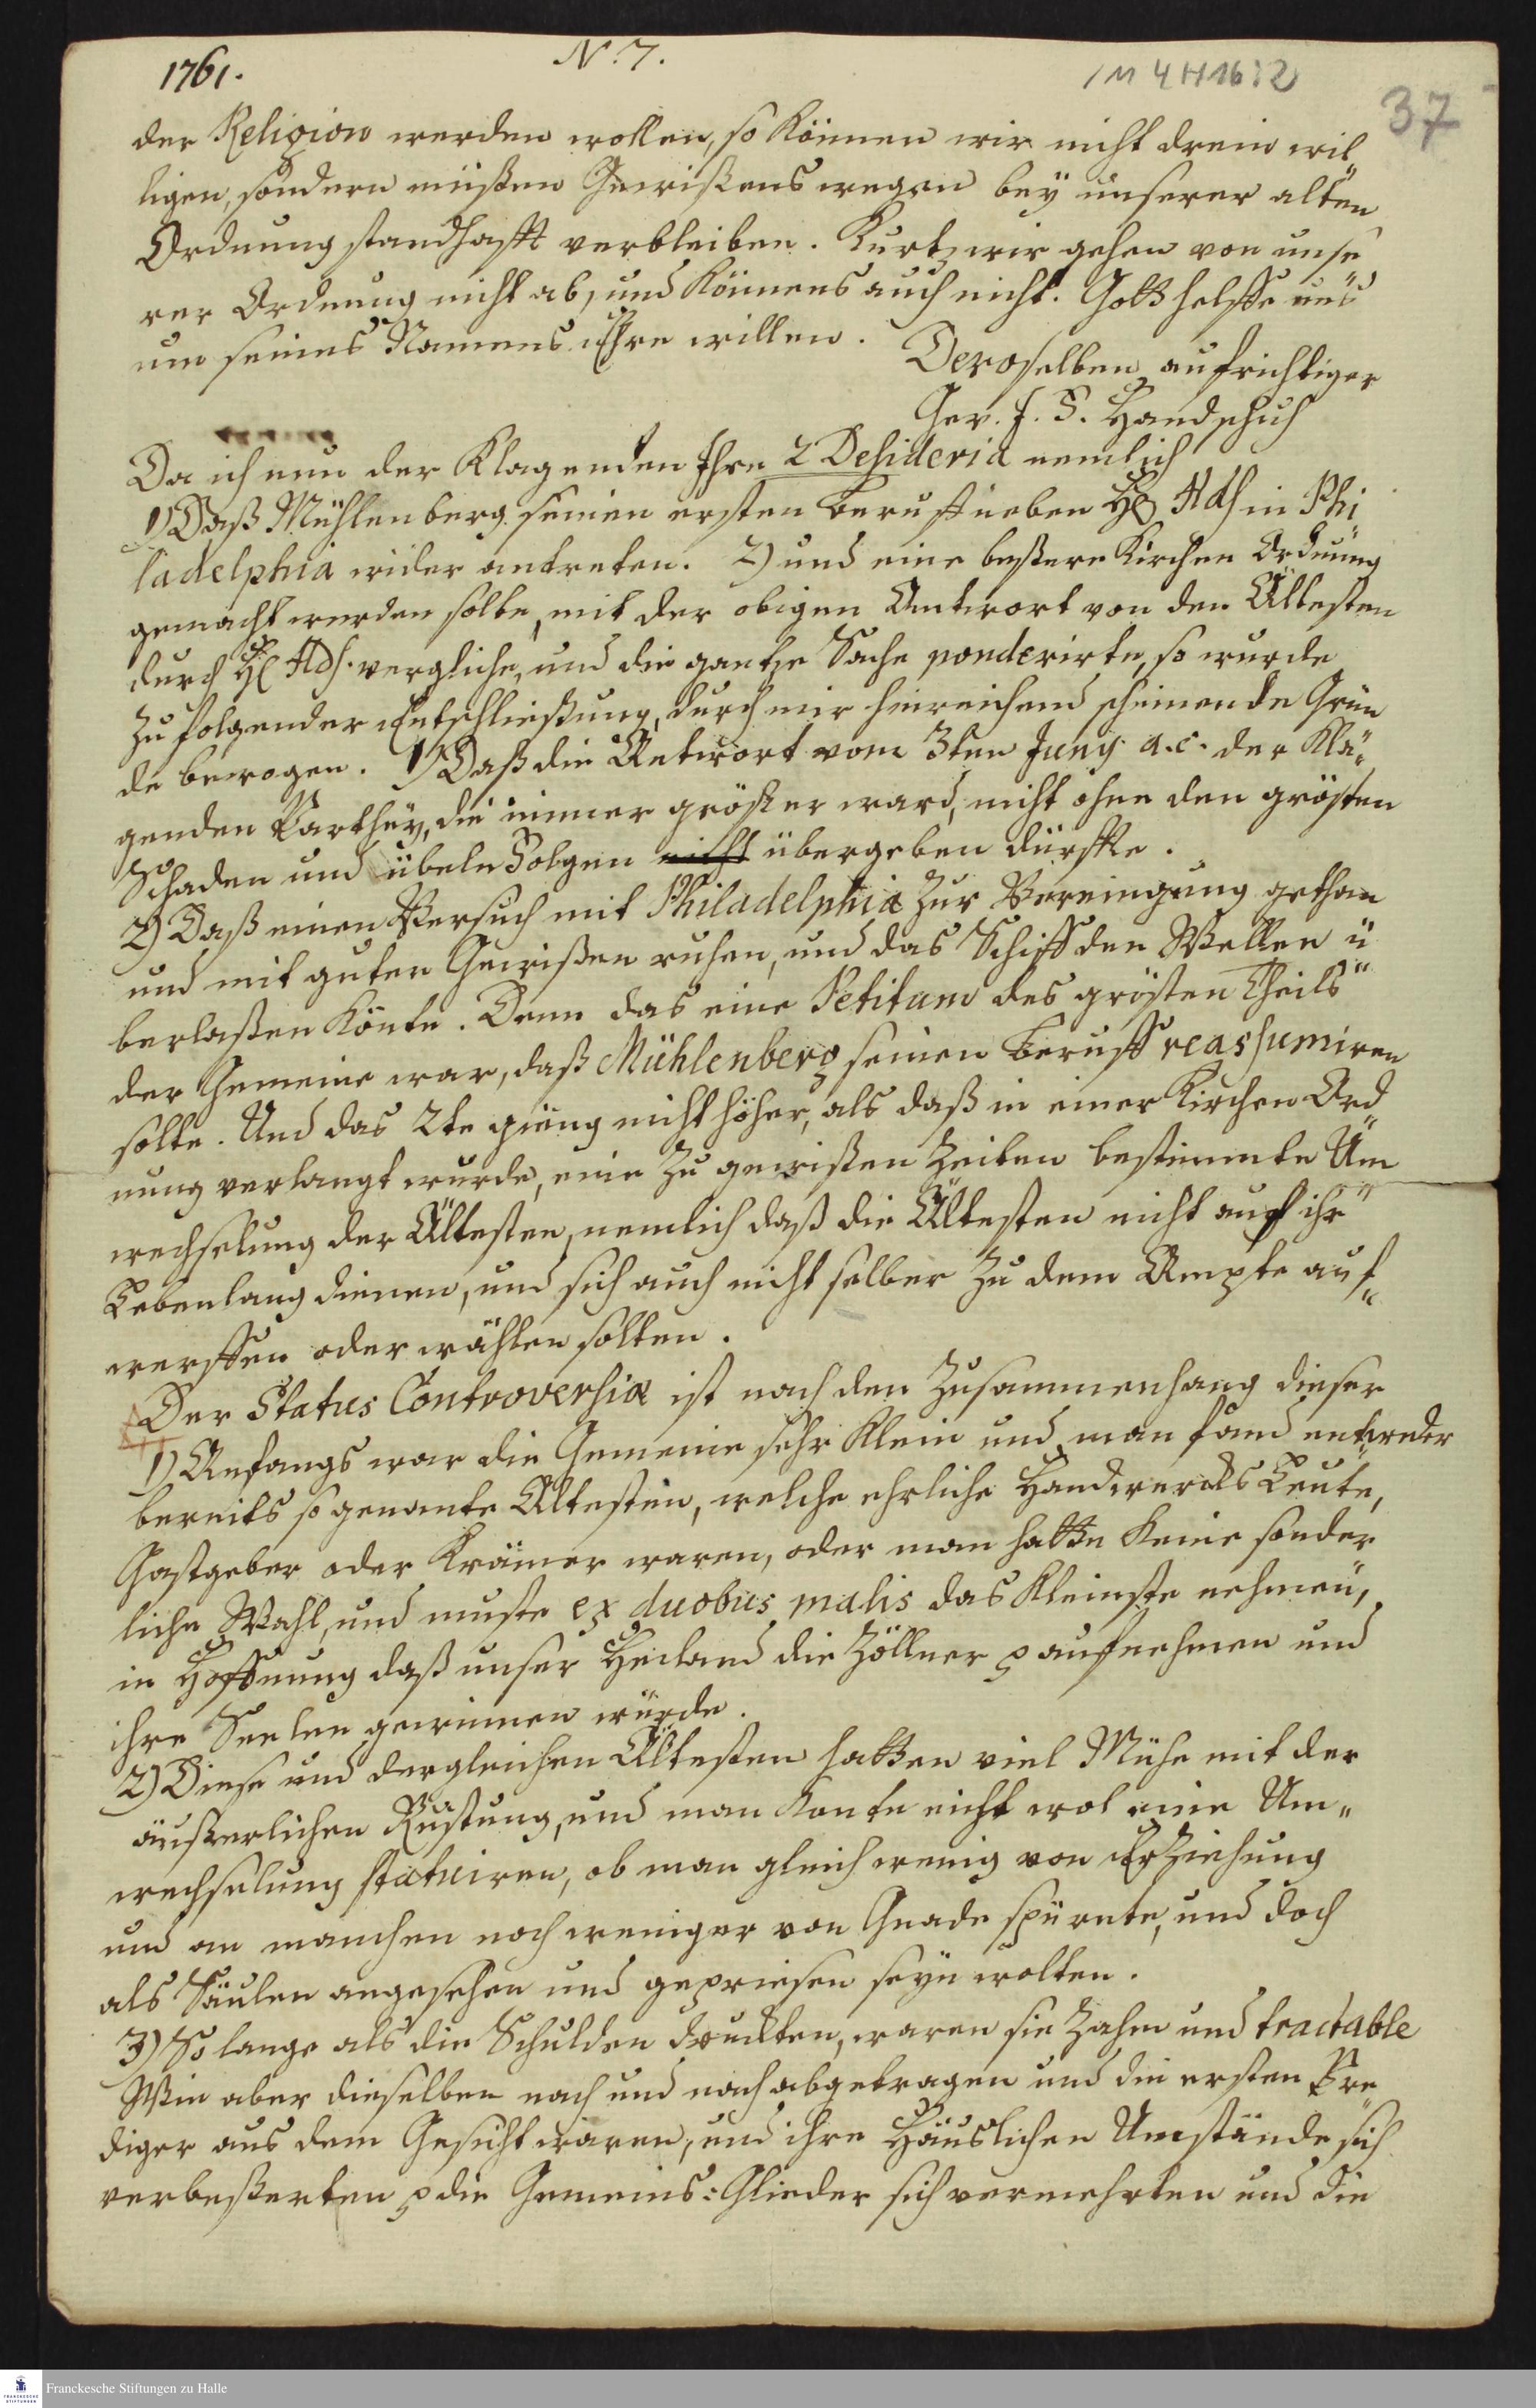 1761.
N. 7.
1 M 4 H 16:2
37
der Religion werden wollen, so können wir nicht drein wil
ligen, sondern müßen Gewißens wegen bey unserer alten
Ordnung standhafft verbleiben. Kurtz wir gehen von unse
rer Ordnung nicht ab, und könnens auch nicht. Gott helffe uns
um seines Namens Ehre willen.
Deroselben aufrichtiger
Gev. J. F. Handschuh
Da ich nun der Klagenden Ihre 2 Desideria nemlich
1) Daß Mühlenberg seinen ersten Beruff neben H Hdh in Phi
ladelphia wider antreten. 2) und eine beßere Kirchen Ordnung
gemacht werden solte, mit der obigen Antwort von den Ältesten
durch H Hdh. vergliche, und die gantze Sache ponderirte, so wurde
zu folgender Entschließung, durch mir hinreichend scheinende Grün
de bewogen. 1) Daß die Antwort vom 3ten Juny a.c. der Kla„
genden Parthey, die immer größer ward, nicht ohne den grösten
Schaden und übeln Folgen nicht übergeben dürffte.
2) Daß einen Versuch mit Philadelphia zur Vereingung gethan
und mit guten Gewißen ruhen, und das Schiff den Wellen ü
berlaßen könte. Denn das eine Petitum des grösten Theils
der Gemeine war, daß Mühlenberg seinen Beruff reassumiren
solte. Und das 2te gieng nicht höher, als daß in einer Kirchen Ord„
nung verlangt wurde, eine zu gewißen Zeiten bestimmte Um
wechselung der Ältesten, nemlich daß die Ältesten nicht auf ihr
Lebenlang dienen, und sich auch nicht selber zu dem Ampte auf„
werffen oder wählen solten.
Der Status Controversiæ ist nach den Zusammenhang dieser
1) Anfangs war die Gemeine sehr klein und man fand entweder
bereits so genante Ältesten, welche ehrliche Handwercks Leute,
Gastgeber oder Krämer waren, oder man hatte keine sonder
liche Wahl, und muste ex duobus malis das kleinste nehmen,
in Hoffnung daß unser Heiland die Zöllner p aufnehmen und
ihre Seelen gewinnen würde.
2) Diese und dergleichen Ältesten hatten viel Mühe mit der
äußerlichen Rüstung, und man konte nicht wol eine Um„
wechselung statuiren, ob man gleich wenig von Erziehung
und an manchen noch weniger von Gnade spürete, und doch
als Säulen angesehen und gepriesen seyn wolten.
3) So lange als die Schulden druckten, waren sie zahm und tractable
Wie aber dieselben nach und nach abgetragen und die ersten Pre
diger aus dem Gesicht waren, und ihre Häuslichen Umstände sich
verbeßerten p die Gemeins=Glieder sich vermehrten und die
Franckesche Stiftungen zu Halle